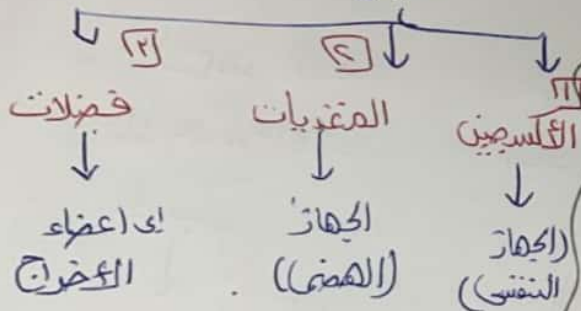 ١
الأكسجين
(الجهاز
التنفسي)
٢
المغذيات
الجهاز
(الهضمي)
٣
فضلات
إلى أعضاء
الأخراج